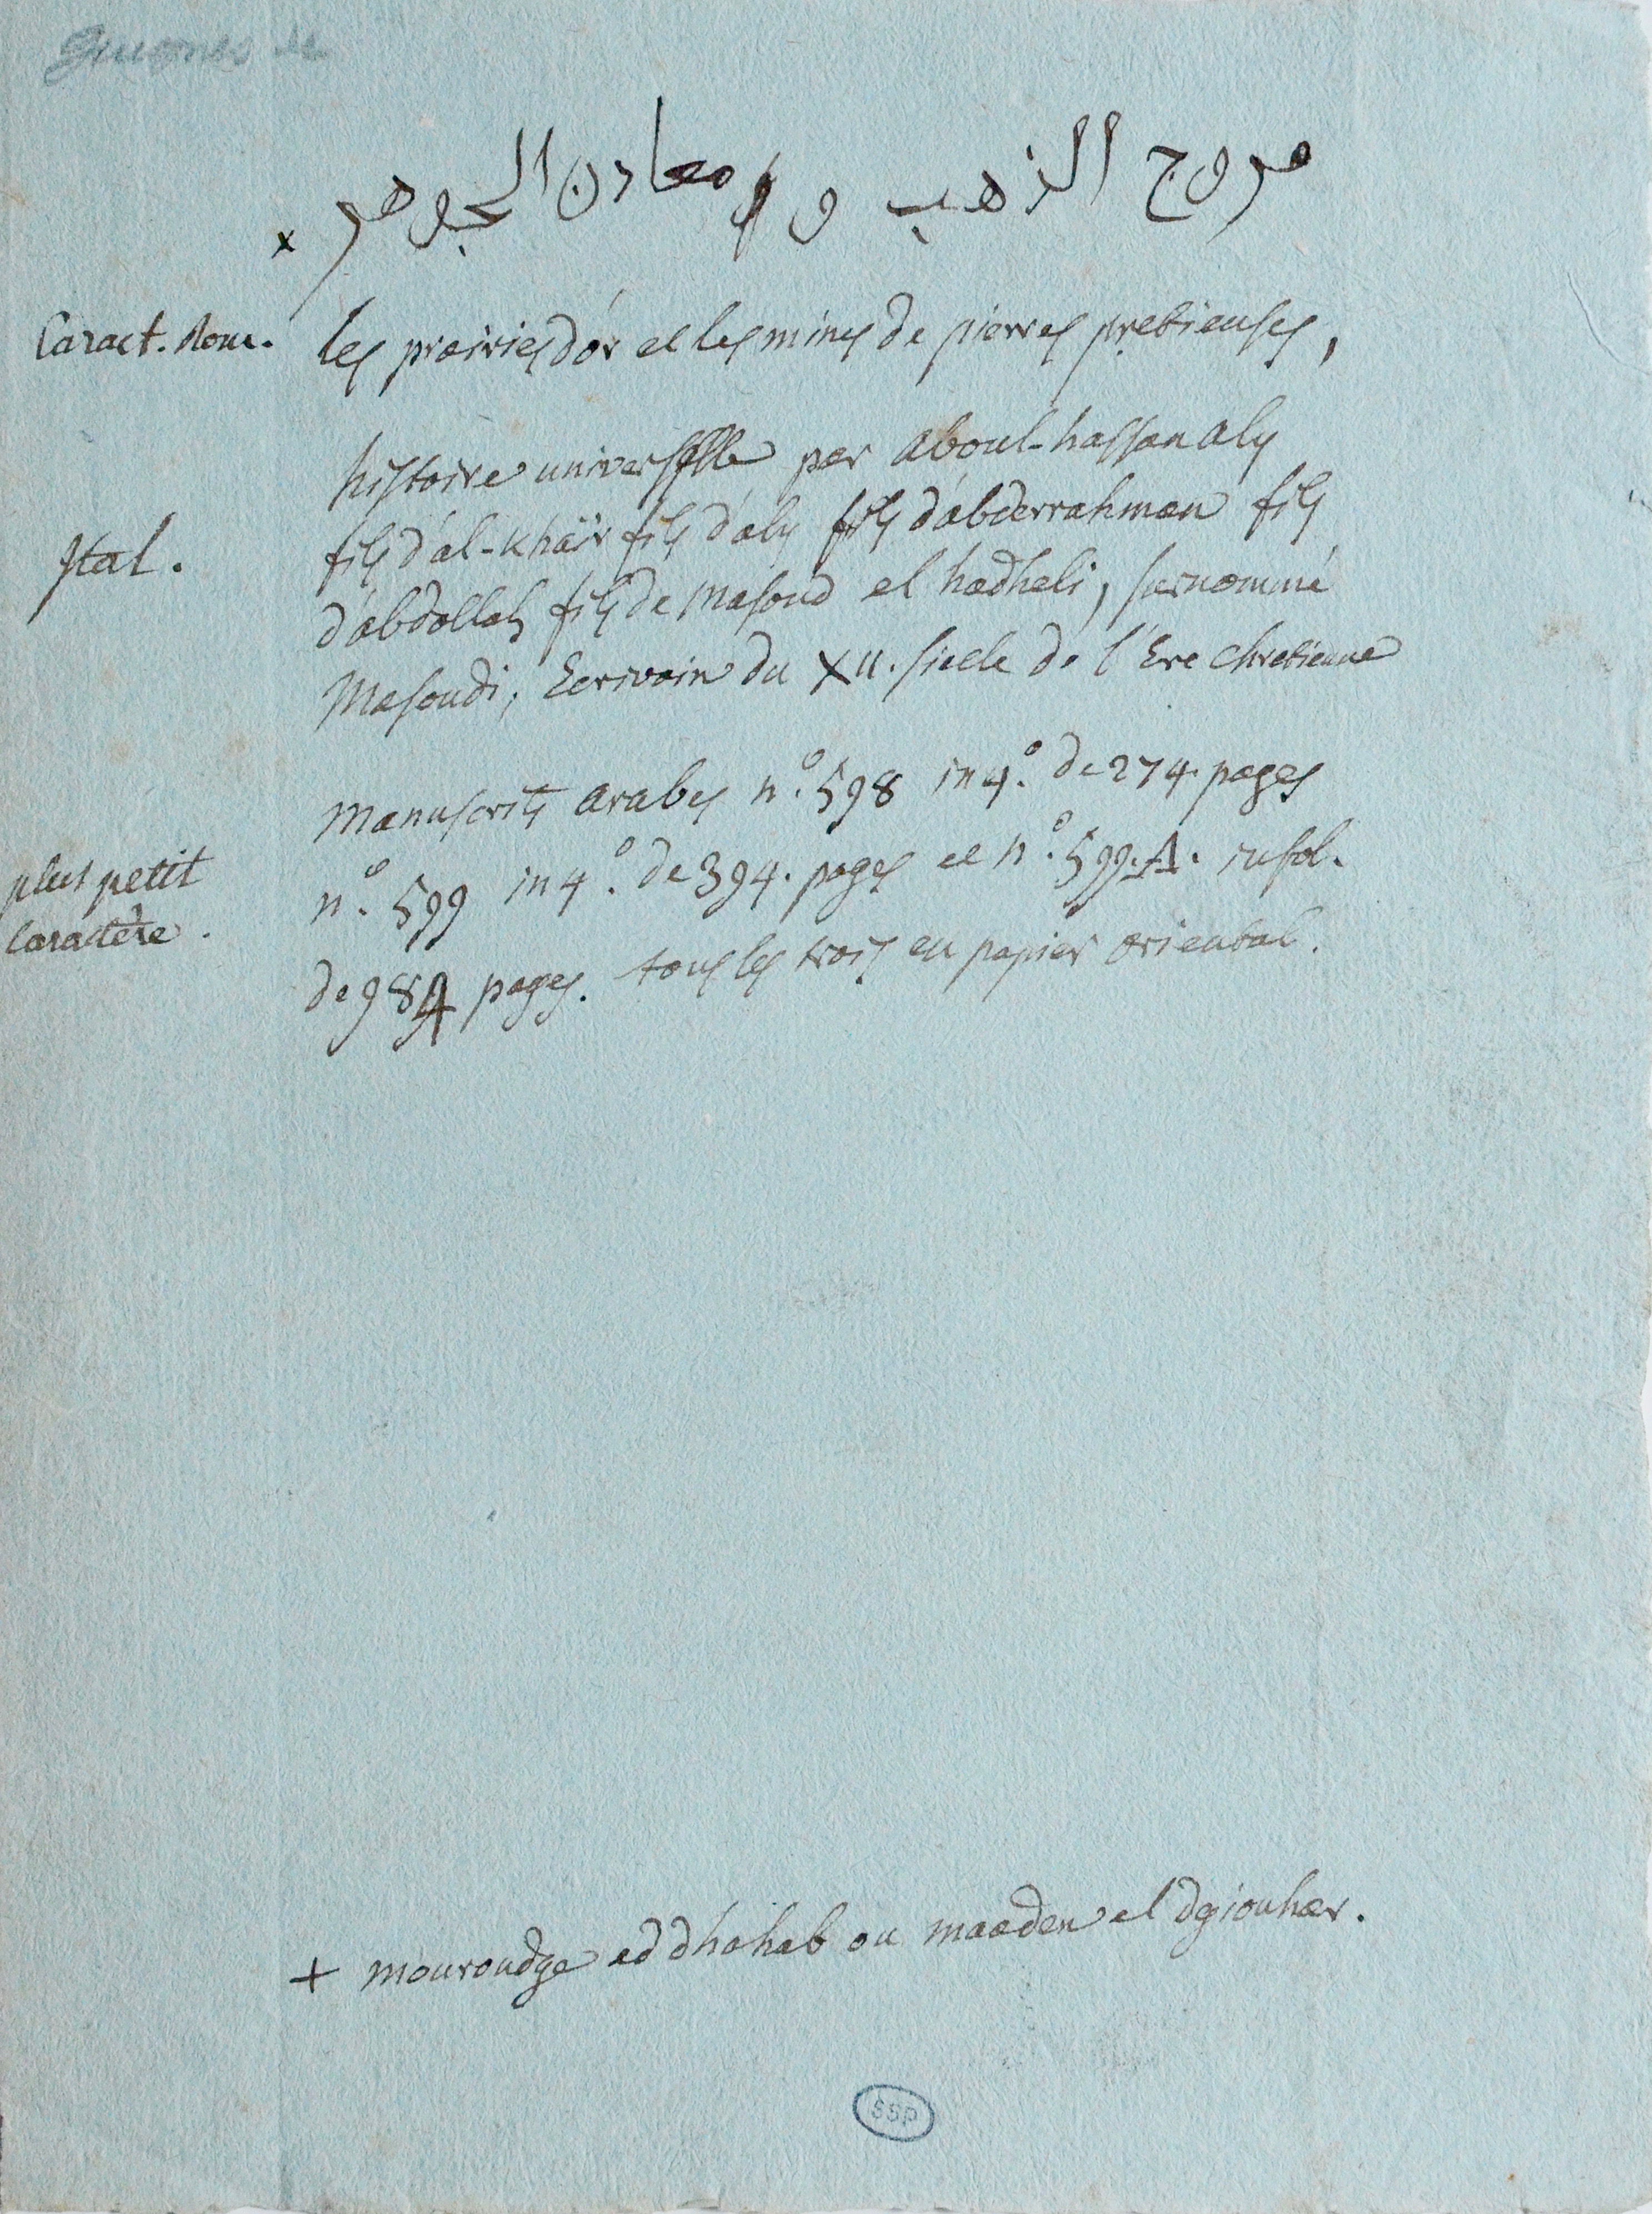 Guignes de
مروج الذهب و معادن الجوهر x
Caract. Rom.
les prairies d'or et les mines de pierres pretieuses,
histoire universelle par Aboul-hassan aly
Ital.
fils d'al-khäir fils d'aly fils d'abderrahman fils
d'abdollah fils de Masoud el hadheli, surnommé
Masoudi, Ecrivain du XII. siecle de l'Ere chretienne
manuscrits arabes n.° 598 in 4.° de 274. pages
plus petit
caractère.
n.° 599 in 4.° de 394. pages et n.° 599.A. in fol.
de 984 pages. tous les trois en papier oriental.
+ mouroudge ed dhahab ou maaden el dgiouhar.
SSP